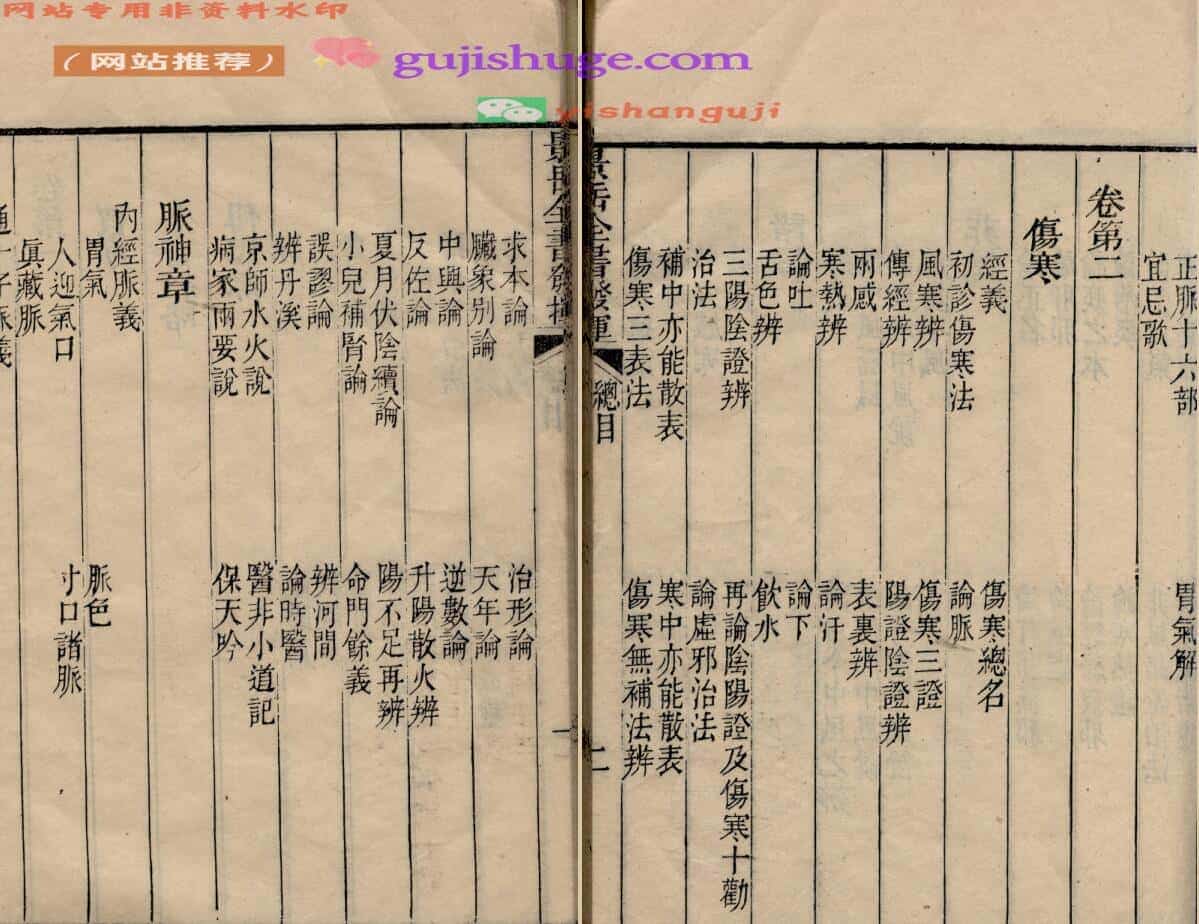 网站专用非资料水印
（网站推荐）
gujishuge.com
yishanguji
正脈十六部　胃氣解
宜忌歌
卷第二
傷寒
經義　傷寒總名
初診傷寒法　論脈
風寒辨　傷寒三證
傳經辨　陽證陰證辨
兩感　表裏辨
寒熱辨　論汗
論吐　論下
舌色辨　飲水
三陽陰證辨　再論陰陽證及傷寒十勸
治法　論虛邪治法
補中亦能散表　寒中亦能散表
傷寒三表法　傷寒無補法辨
景岳全書發揮　總目　二
景岳全書發揮
求本論　治形論
臟象別論　天年論
中興論　逆數論
反佐論　升陽散火辨
夏月伏陰續論　陽不足再辨
小兒補腎論　命門餘義
誤謬論　辨河間
辨丹溪　論時醫
京師水火說　醫非小道記
病家兩要說　保天吟
脈神章
內經脈義
胃氣　脈色
人迎氣口　寸口諸脈
眞藏脈
通一子脈義